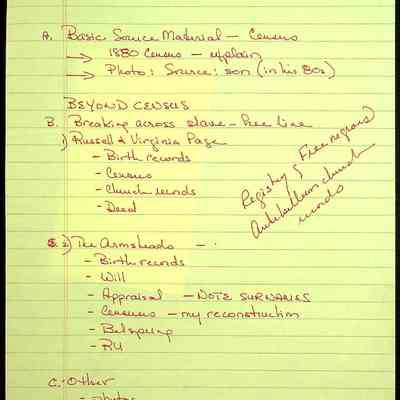 A. Basic Source Material — Census
→ 1880 Census — explain
→ Photo: Source: son (in his 80s)
BEYOND CENSUS
B. Breaking across slave-free line
1) Russell & Virginia Page
- Birth records
- Census
- Church records
- Deed
Registry of Free negroes
Antebellum church
records
2) The Armsteads —
- Birth records
- Will
- Appraisal — NOTE SURNAMES
- Census — my reconstruction
C. Other
- photos